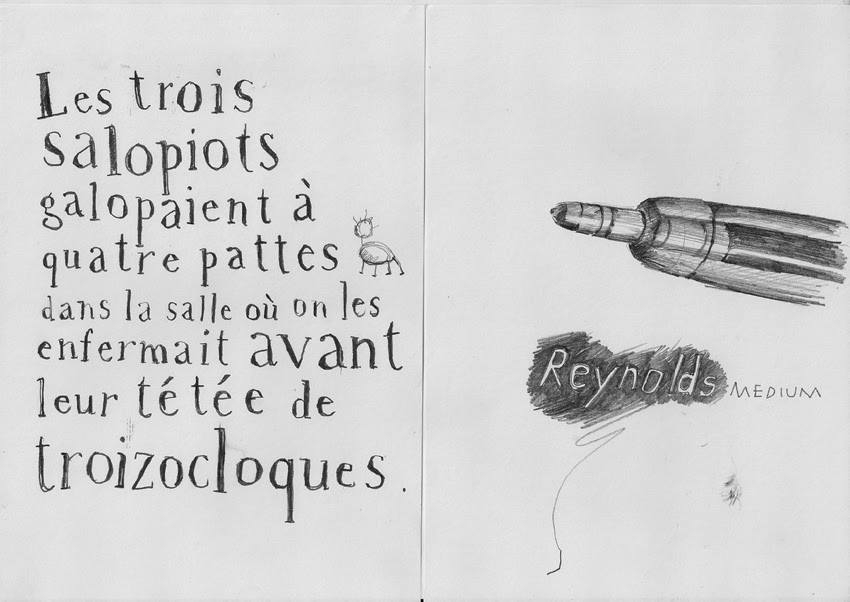 Les trois
salopiots
galopaient à
quatre pattes
dans la salle où on les
enfermait avant
leur tétée de
troizocloques.
Reynolds MEDIUM